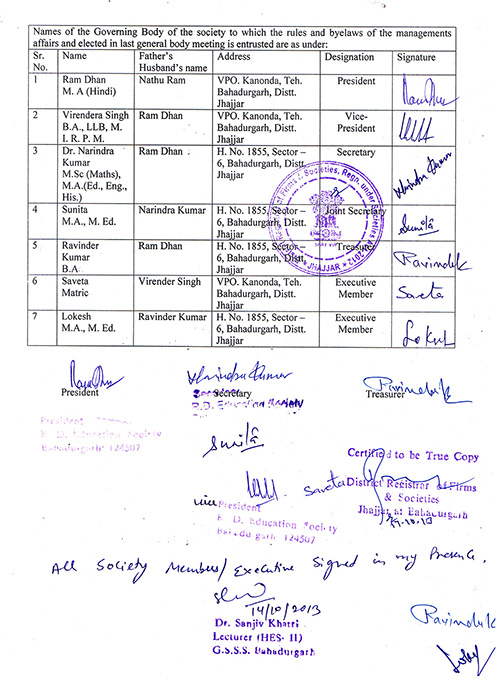 Names of the Governing Body of the society to which the rules and byelaws of the managements
affairs and elected in last general body meeting is entrusted are as under:
Sr. No. Name Father's Husband's name Address Designation Signature
1 Ram Dhan M. A (Hindi) Nathu Ram VPO. Kanonda, Teh. Bahadurgarh, Distt. Jhajjar President
2 Virendera Singh B.A., LLB, M. I. R. P. M. Ram Dhan VPO. Kanonda, Teh. Bahadurgarh, Distt. Jhajjar Vice-President
3 Dr. Narindra Kumar M.Sc (Maths), M.A.(Ed., Eng., His.) Ram Dhan H. No. 1855, Sector – 6, Bahadurgarh, Distt. Jhajjar Secretary Narindra Kumar
4 Sunita M.A., M. Ed. Narindra Kumar H. No. 1855, Sector – 6, Bahadurgarh, Distt. Jhajjar Joint Secretary Sunita
5 Ravinder Kumar B.A. Ram Dhan H. No. 1855, Sector – 6, Bahadurgarh, Distt. Jhajjar Treasurer
6 Saveta Matric Virender Singh VPO. Kanonda, Teh. Bahadurgarh, Distt. Jhajjar Executive Member Saveta
7 Lokesh M.A., M. Ed. Ravinder Kumar H. No. 1855, Sector – 6, Bahadurgarh, Distt. Jhajjar Executive Member
of Firms & Societies, Regn. under Societies Act 2012
JHAJJAR
Narindra Kumar
President Secretary Treasurer
President
R. D. Education Society
Bahadurgarh 124507
R.D. Education Society
Sunita
Certified to be True Copy
Saveta District Registrar of Firms
& Societies
Jhajjar at Bahadurgarh
Vice President
R. D. Education Society
Bahadurgarh 124507
All Society Members/Executive Signed in my Presence.
14/10/2013
Dr. Sanjiv Khatri
Lecturer (HES- II)
G.S.S.S. Bahadurgarh